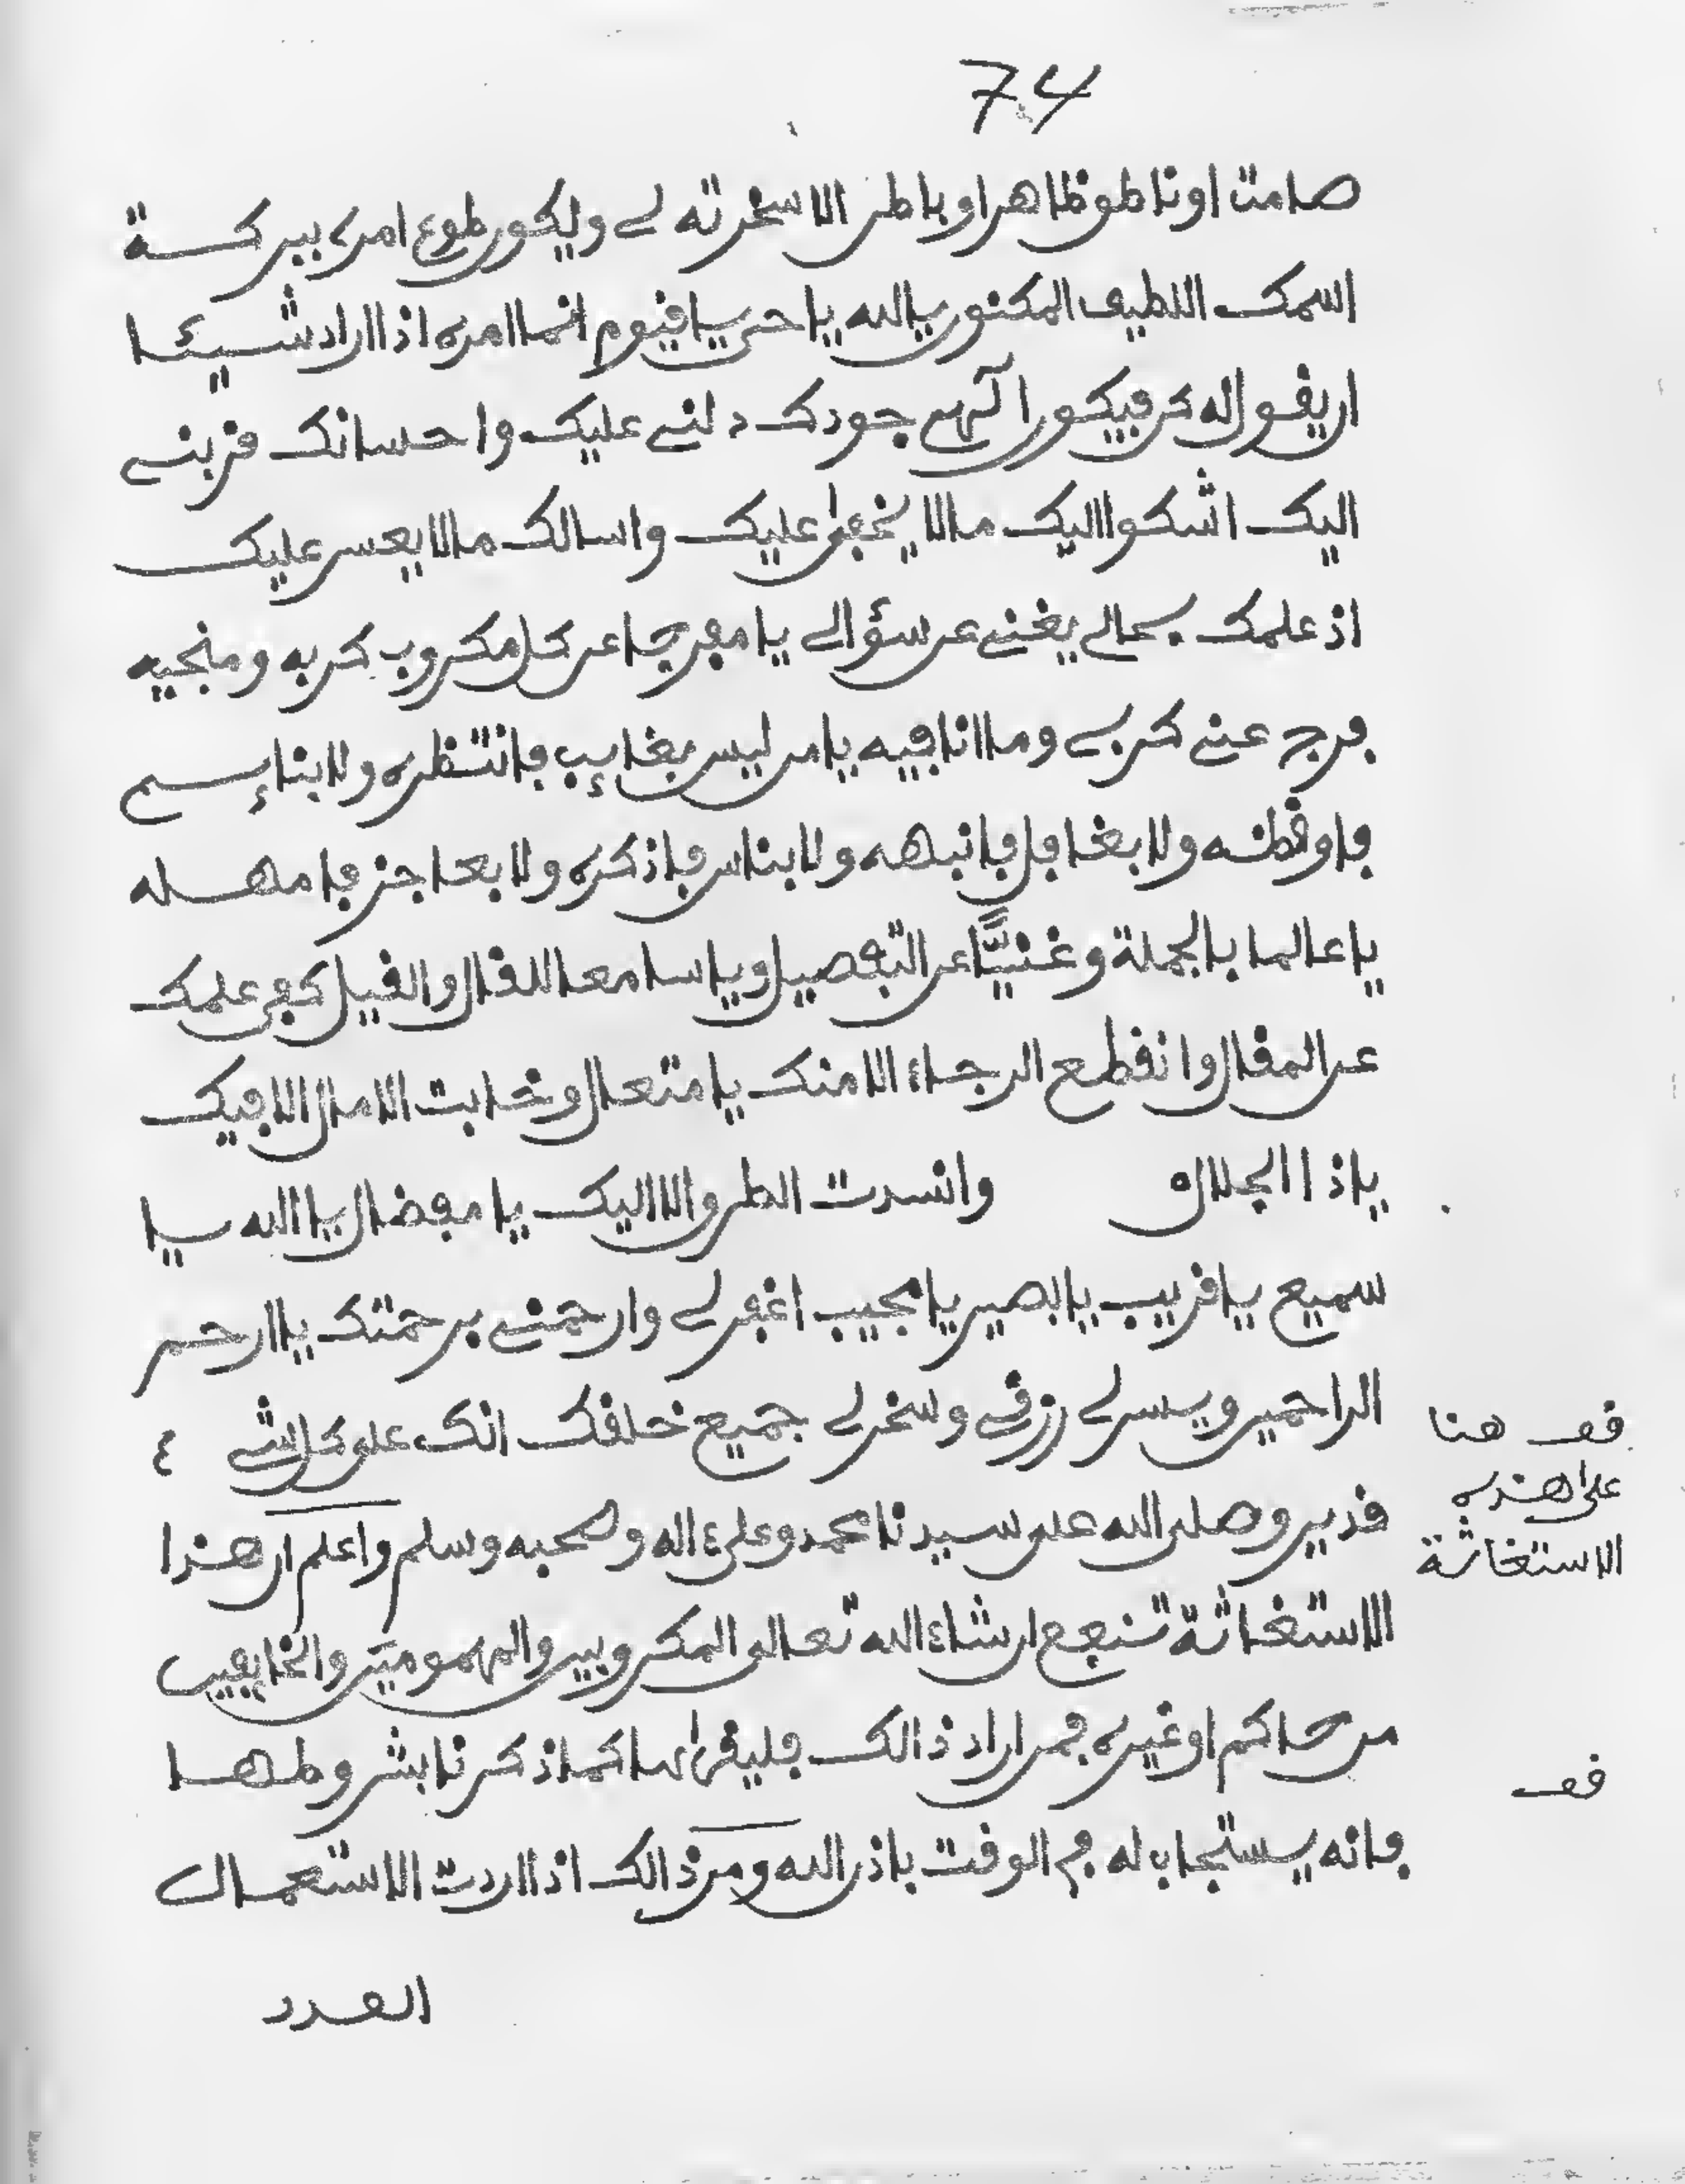 74
صامت او ناطق ظاهر او باطن الا سخرته لي وليكون طوع امري ببركة
اسمك اللطيف المكنون يالله يا حي يا قيوم انما امره اذا اراد شيئا
ان يقول له كن فيكون الهي جودك دلني عليك واحسانك قربني
اليك اشكوا اليك مالا يخفى عليك واسالك مالا يعسر عليك
اذ علمك بحالي يغني عن سؤالي يا مفرجا عن كل مكروب كربه ومنجيه
فرج عني كربي وما انا فيه يا من ليس بغايب فانتظره ولا بنايم
فاوقظه ولا بغافل فانبهه ولا بناس فاذكره ولا بعاجز فامهله
يا عالما بالجملة وغنيًّا عن التفصيل ويا سامعا للقال والقيل كفى علمك
عن المقال وانقطع الرجاء الا منك يا متعال وخابت الامال الا فيك
ياذا الجلال وانسدت الطرق الا اليك يا مفضال يا الله يا
سميع يا قريب يا بصير يا مجيب اغفر لي وارحمني برحمتك يا ارحم
الراحمين ويسر لي رزقي وسخر لي جميع خلقك انك على كل شيء
قدير وصلى الله على سيدنا محمد وعلى ءاله وصحبه وسلم واعلم ان هذا
الاستغاثة تنفع ان شاء الله تعالى المكروبين والمهمومين والخايفين
من حاكم او غيره فمن اراد ذالك فليقراها كما ذكرنا بشروطها
فانه يستجاب له في الوقت باذن الله ومن ذالك اذا اردت الاستعمال
قف هنا
على هذه
الاستغاثة
قف